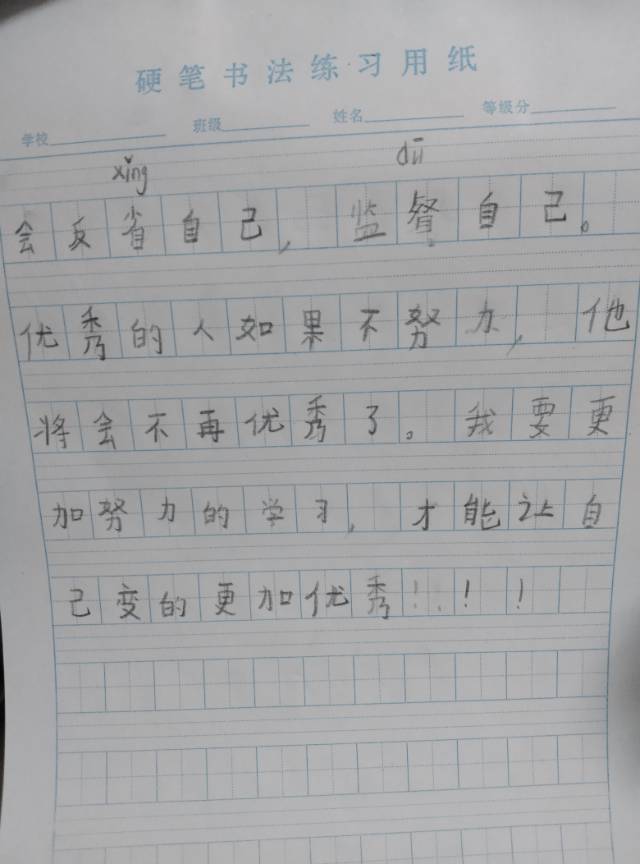 硬笔书法练习用纸
学校 班级 姓名 等级分
xǐng dū
会反省自己，监督自己。
优秀的人如果不努力，他
将会不再优秀了。我要更
加努力的学习，才能让自
己变的更加优秀！！！！